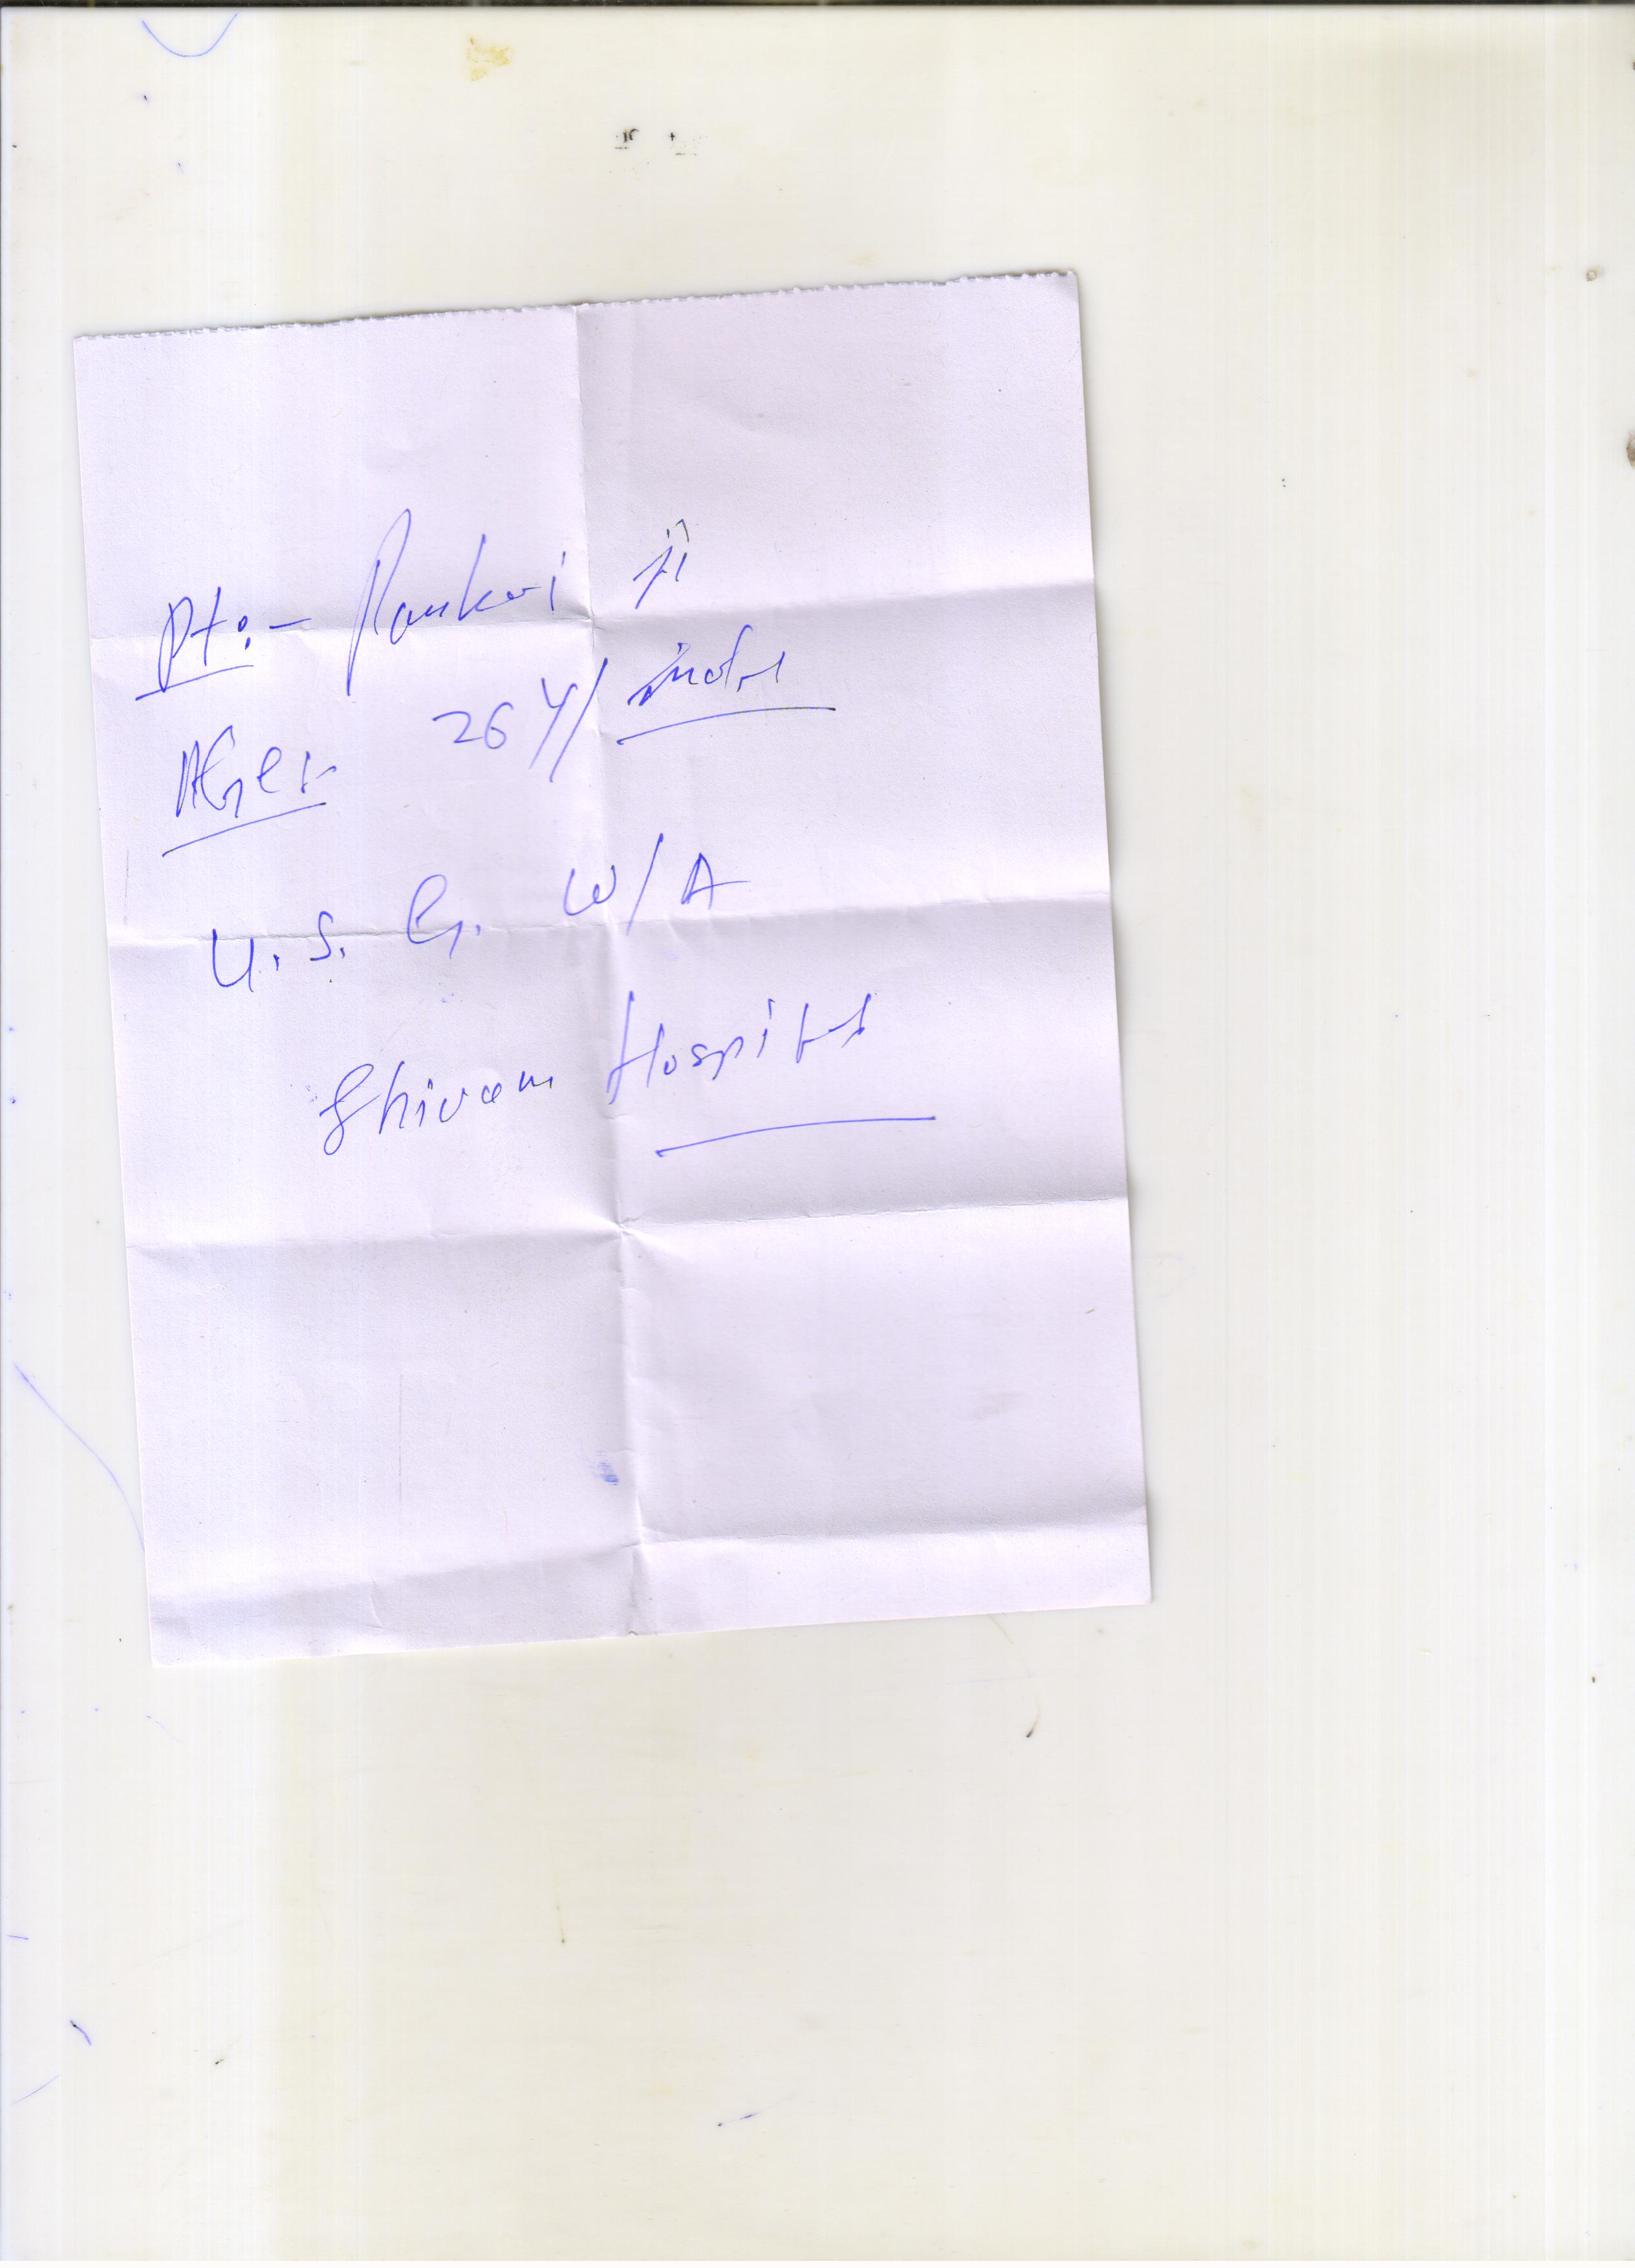 Pt:- Ramkari ji
AGe:- 26 Y/
U.S.G. W/A
Shivam Hospital